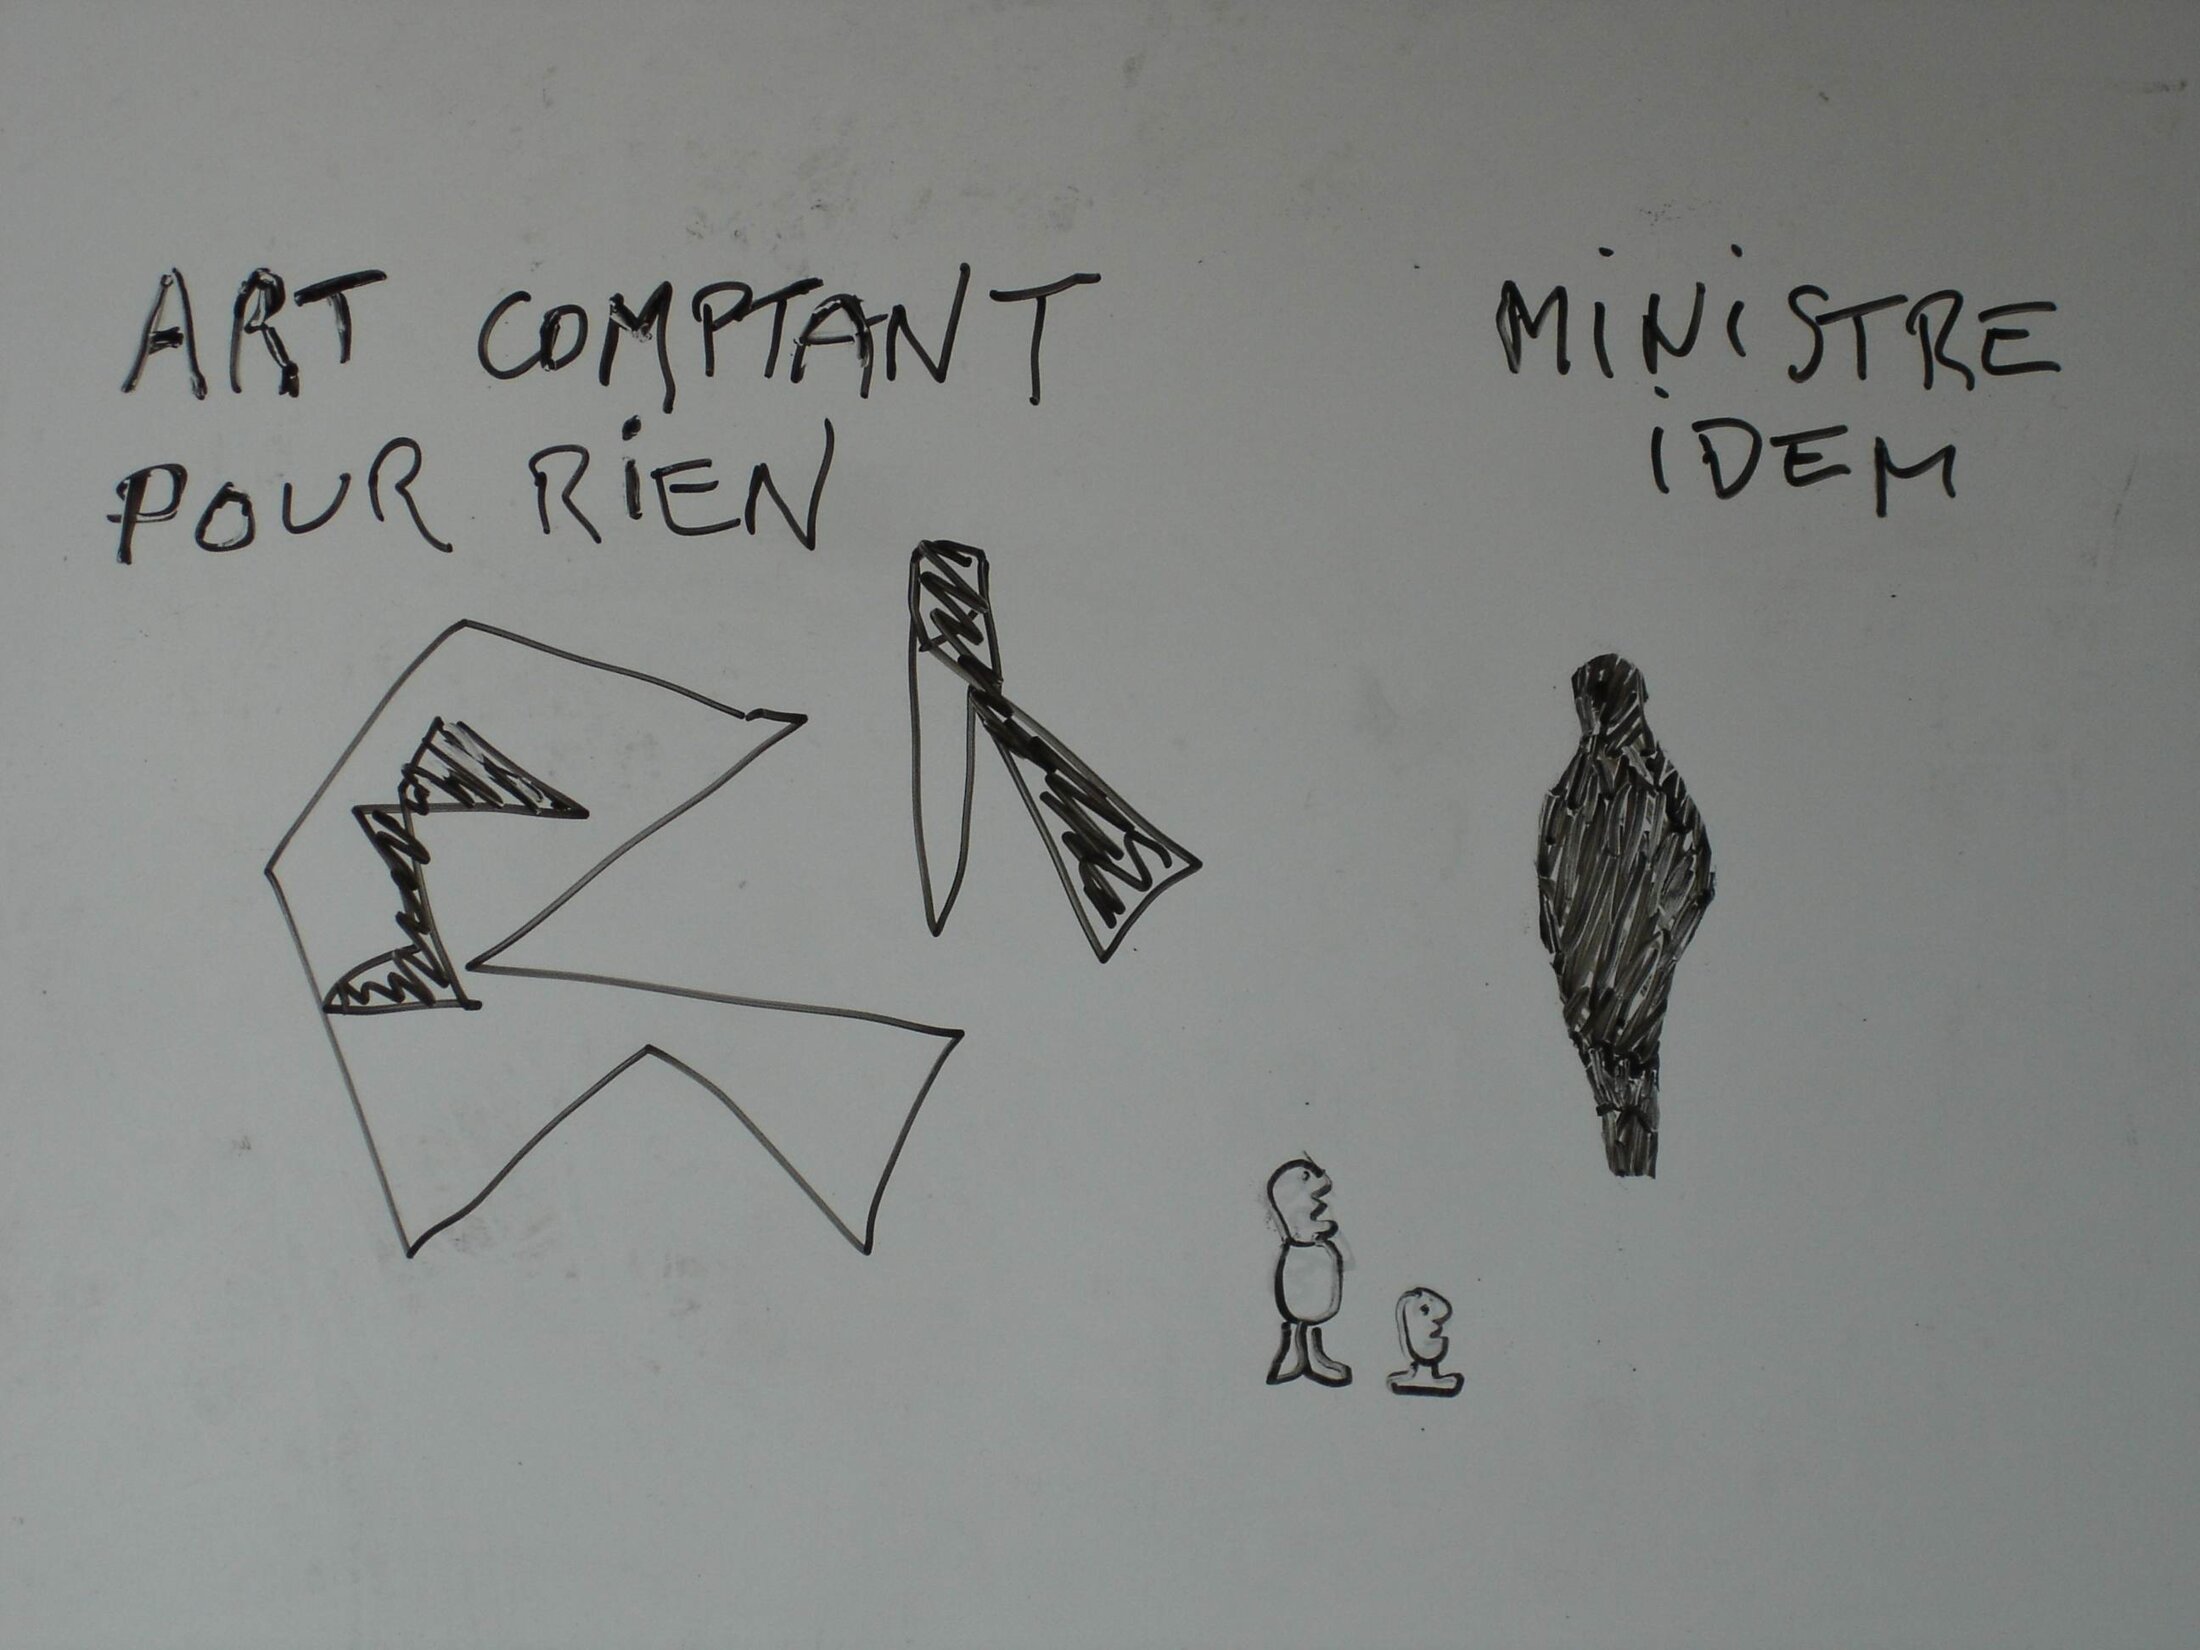 ART COMPTANT
POUR RIEN
MINISTRE
IDEM